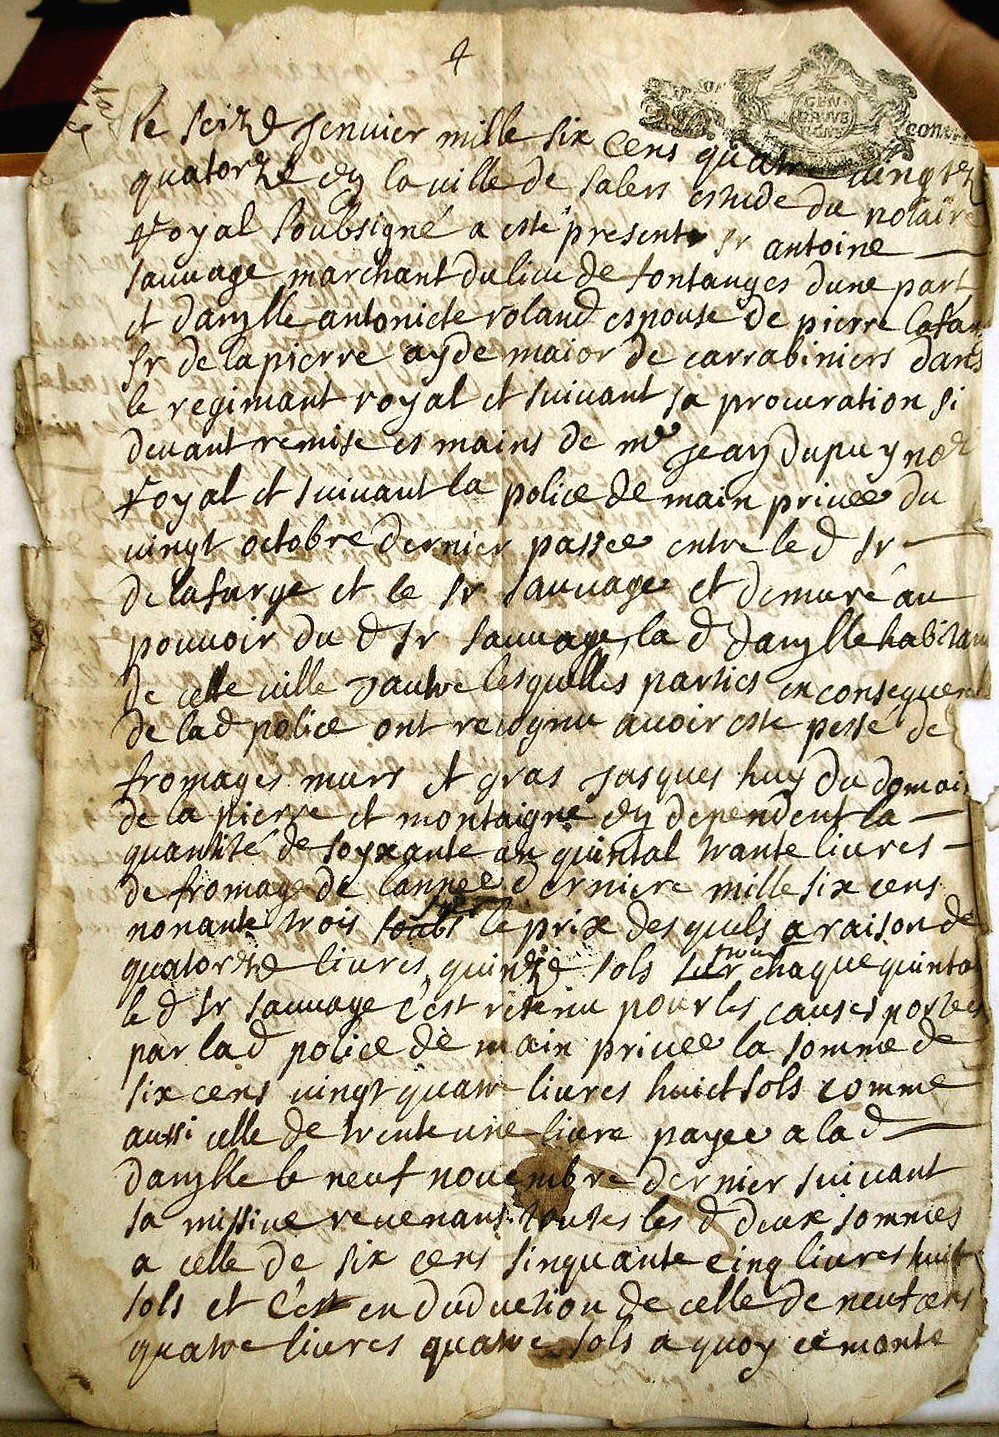 le seize Jenuier mille six cens quatre uingtz
quatorze en la uille de salers estude du notaire
royal soubsigné a esté present sr antoine
sauuage marchant du lieu de fontanges dune part
et damlle antoniete roland espouse de pierre lafar
sr de lapierre ayde maior de carrabiniers dans
le regimant royal et suiuant sa procuration si
deuant remise es mains de me Jean dupuy nore
royal et suiuant la police de main priuee du
uingt octobre dernier passee entre le d sr
de lafarge et le sr sauuage et demuré au
pouuoir du d sr sauuage, la d damlle habitan
de cette uille dautre lesquelles parties en consequen
de lad police ont recognu auoir este pesse de
fromages murs et gras Jusques huy du domai
de la pierre et montaigne en dependent la
quantité de soyxante un quintal trante liures
de fromage de lannee derniere mille six cens
nonante trois soubs le prix desquels a raison de
quatorze liures quinze sols pour chaque quintal
le d sr sauuage c'est retenu pour les causes portees
par lad police de main priuee la somme de
six cens uingt quatre liures huict sols comme
aussi celle de trente une liure payee a lad
damlle le neuf nouembre dernier suiuant
sa missiue reuenans toutes les d deux sommes
a celle de six cens sinquante cinq liures huit
sols et c'est en duduction de celle de neuf cens
quatre liures quatre sols a quoy ce monte